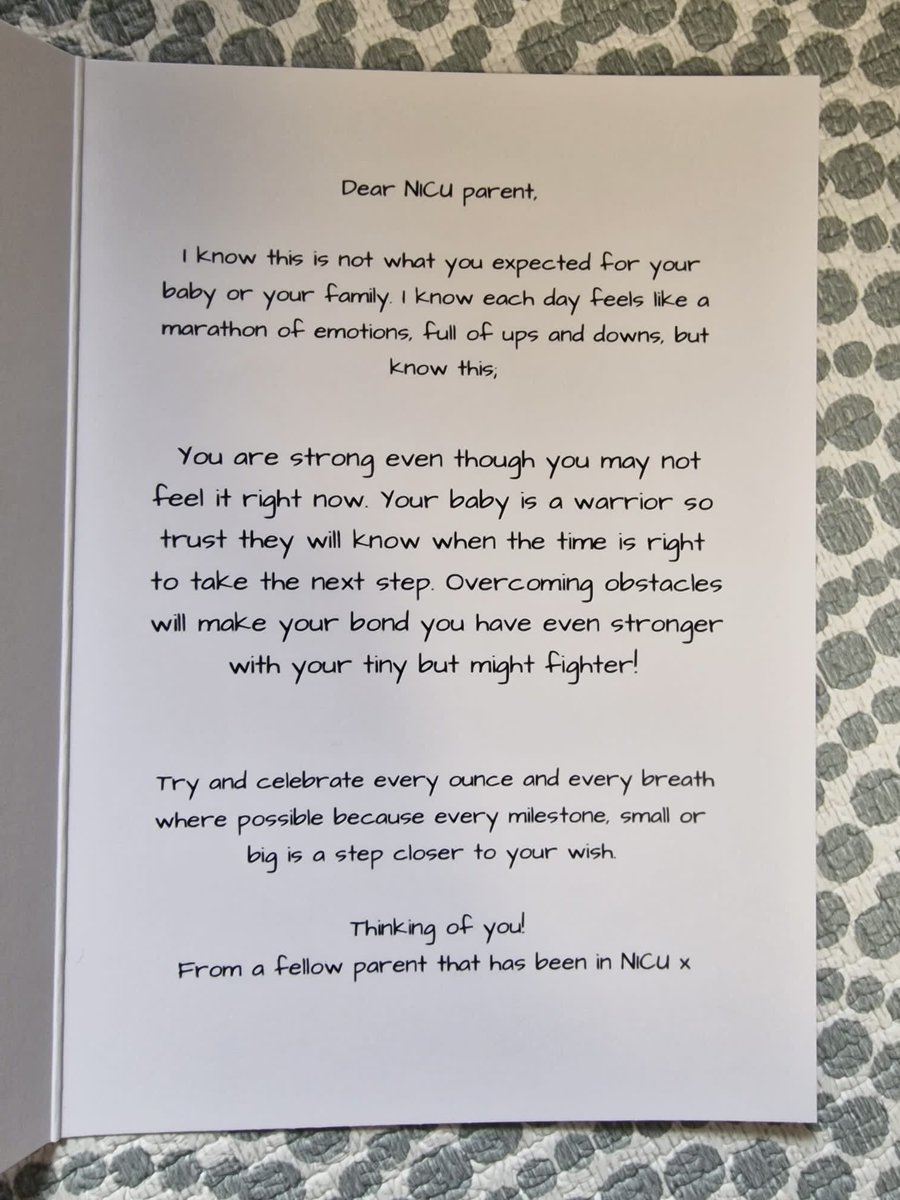 Dear NICU parent,
I know this is not what you expected for your
baby or your family. I know each day feels like a
marathon of emotions, full of ups and downs, but
know this;
You are strong even though you may not
feel it right now. Your baby is a warrior so
trust they will know when the time is right
to take the next step. Overcoming obstacles
will make your bond you have even stronger
with your tiny but might fighter!
Try and celebrate every ounce and every breath
where possible because every milestone, small or
big is a step closer to your wish.
Thinking of you!
From a fellow parent that has been in NICU x